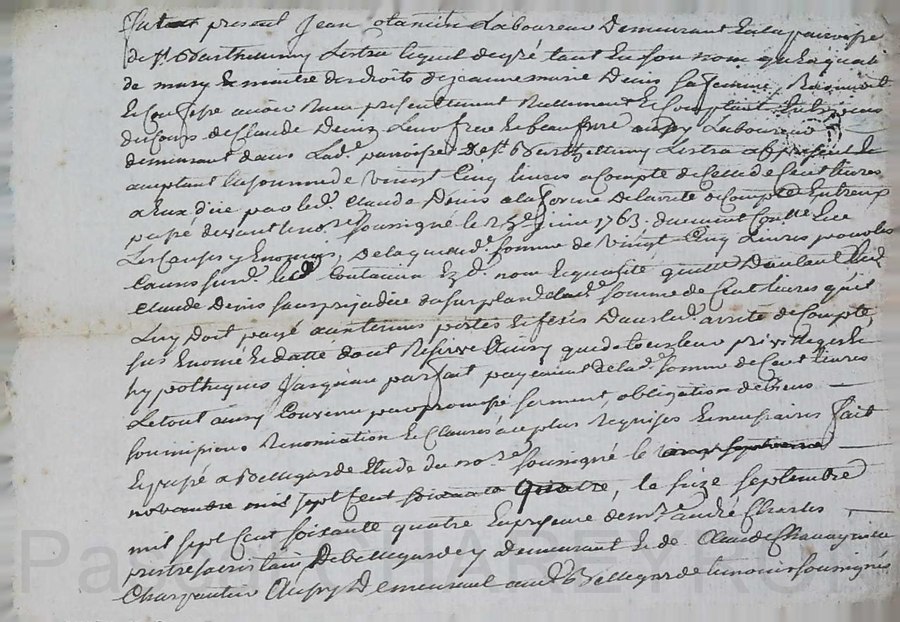 fut present Jean Laboureur demeurant en la parroisse
de St Barthelemy Lestra lequel de gré tant en son nom qu'en qualité
de mary & maitre des droits de Jeanne marie Denis sa femme, Reconnoit
& Confesse avoir Receu presentement Reellement & Comptant
de Claude Denis Leur frere & beaufrere aussy Laboureur
demeurant dans Lade parroisse de St Barthelemy Lestra a present &
acceptant la somme de vingt Cinq livres a Compte de Celle de Cent livres
a Eux düe par led. Claude Denis a la forme de larreté de Compte Entr'eux
passé devant le nore soussigné le juin 1763. duement Conttrollé
Les Causes y Enoncées, de laquelle de somme de vingt Cinq Livres pour les
Causes susd. led Ezd. nom & qualité quitte
Claude Denis sans prejudice du surplus de lade somme de Cent livres qu'il
Luy doit payé aux termes portés & fixés dans led. arreté de Compte,
sus Enoncé & datté dont Reserve Ainsy que de tous leur privilleges &
hypotheques Jusqu'au parfait payement de lade somme de Cent livres
Le tout ainsy Convenu par promesse serment obligation de biens —
soumissions Renonciation & Clauses les plus Requises & necessaires fait
& passé a Bellegarde Etude du nore soussigné le
novembre mil sept Cent soixante quatre, le seize septembre
mil sept Cent soixante quatre En presence de mre andré Charles —
prestre sacristain De Bellegarde y demeurant & de Claude
Charpentier Aussy Demeurant aud. Bellegarde temoins soussignés
Pa CHAREYRON